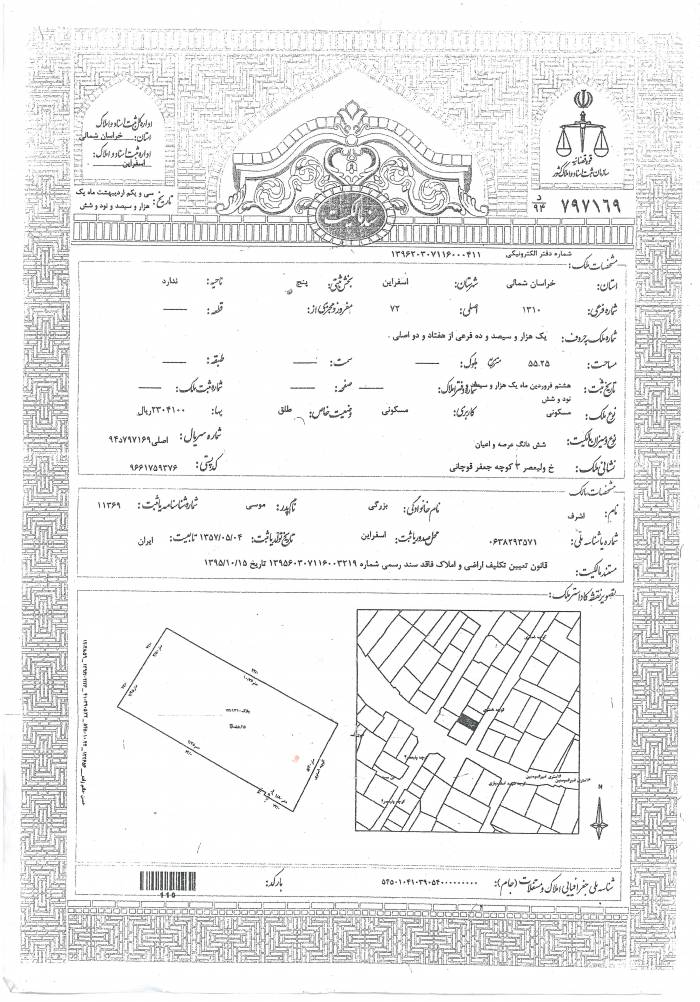 قوه قضائیه
سازمان ثبت اسناد و املاک کشور
۷۹۷۱۶۹ د ۹۴
اداره کل ثبت اسناد و املاک
استان: خراسان شمالی
اداره ثبت اسناد و املاک:
اسفراین
تاریخ: سی و یکم اردیبهشت ماه یک
هزار و سیصد و نود و شش
سند مالکیت
شماره دفتر الکترونیکی ۱۳۹۶۲۰۳۰۷۱۱۶۰۰۰۴۱۱
مشخصات ملک:
استان: خراسان شمالی شهرستان: اسفراین بخش ثبتی: پنج ناحیه: ندارد
شماره فرعی: ۱۳۱۰ اصلی: ۷۲ مفروز و مجزی از: —— قطعه: ——
شماره ملک بحروف: یک هزار و سیصد و ده فرعی از هفتاد و دو اصلی .
مساحت: ۵۵.۲۵ مترمربع بلوک: —— سمت: —— طبقه: ——
تاریخ ثبت: هشتم فروردین ماه یک هزار و سیصد شماره دفتر املاک: —— صفحه: —— شماره ثبت ملک: ——
نود و شش
نوع ملک: مسکونی کاربری: مسکونی وضعیت خاص: طلق بهاء: ۲۳۰۴۱۰۰ریال
نوع و میزان مالکیت: شش دانگ عرصه و اعیان شماره سریال: اصلی۷۹۷۱۶۹د۹۴
نشانی ملک: خ ولیعصر ۳ کوچه جعفر قوچانی کد پستی: ۹۶۶۱۷۵۹۳۷۶
مشخصات مالک:
نام: اشرف نام خانوادگی: بزرگی نام پدر: موسی شماره شناسنامه یا ثبت: ۱۱۳۶۹
شماره یا شناسه ملی: ۰۶۳۸۲۹۳۵۷۱ محل صدور یا ثبت: اسفراین تاریخ تولد یا ثبت: ۱۳۵۷/۰۵/۰۴ تابعیت: ایران
مستند مالکیت: قانون تعیین تکلیف اراضی و املاک فاقد سند رسمی شماره ۱۳۹۵۶۰۳۰۷۱۱۶۰۰۳۲۱۹ تاریخ ۱۳۹۵/۱۰/۱۵
تصویر نقشه کاداستر ملک:
N
شناسه ملی جغرافیایی املاک و مستغلات (جام): ۵۴۵۰۱۰۴۱۰۳۹۰۵۴۰۰۰۰۰۰۰۰۰
بارکد:
110